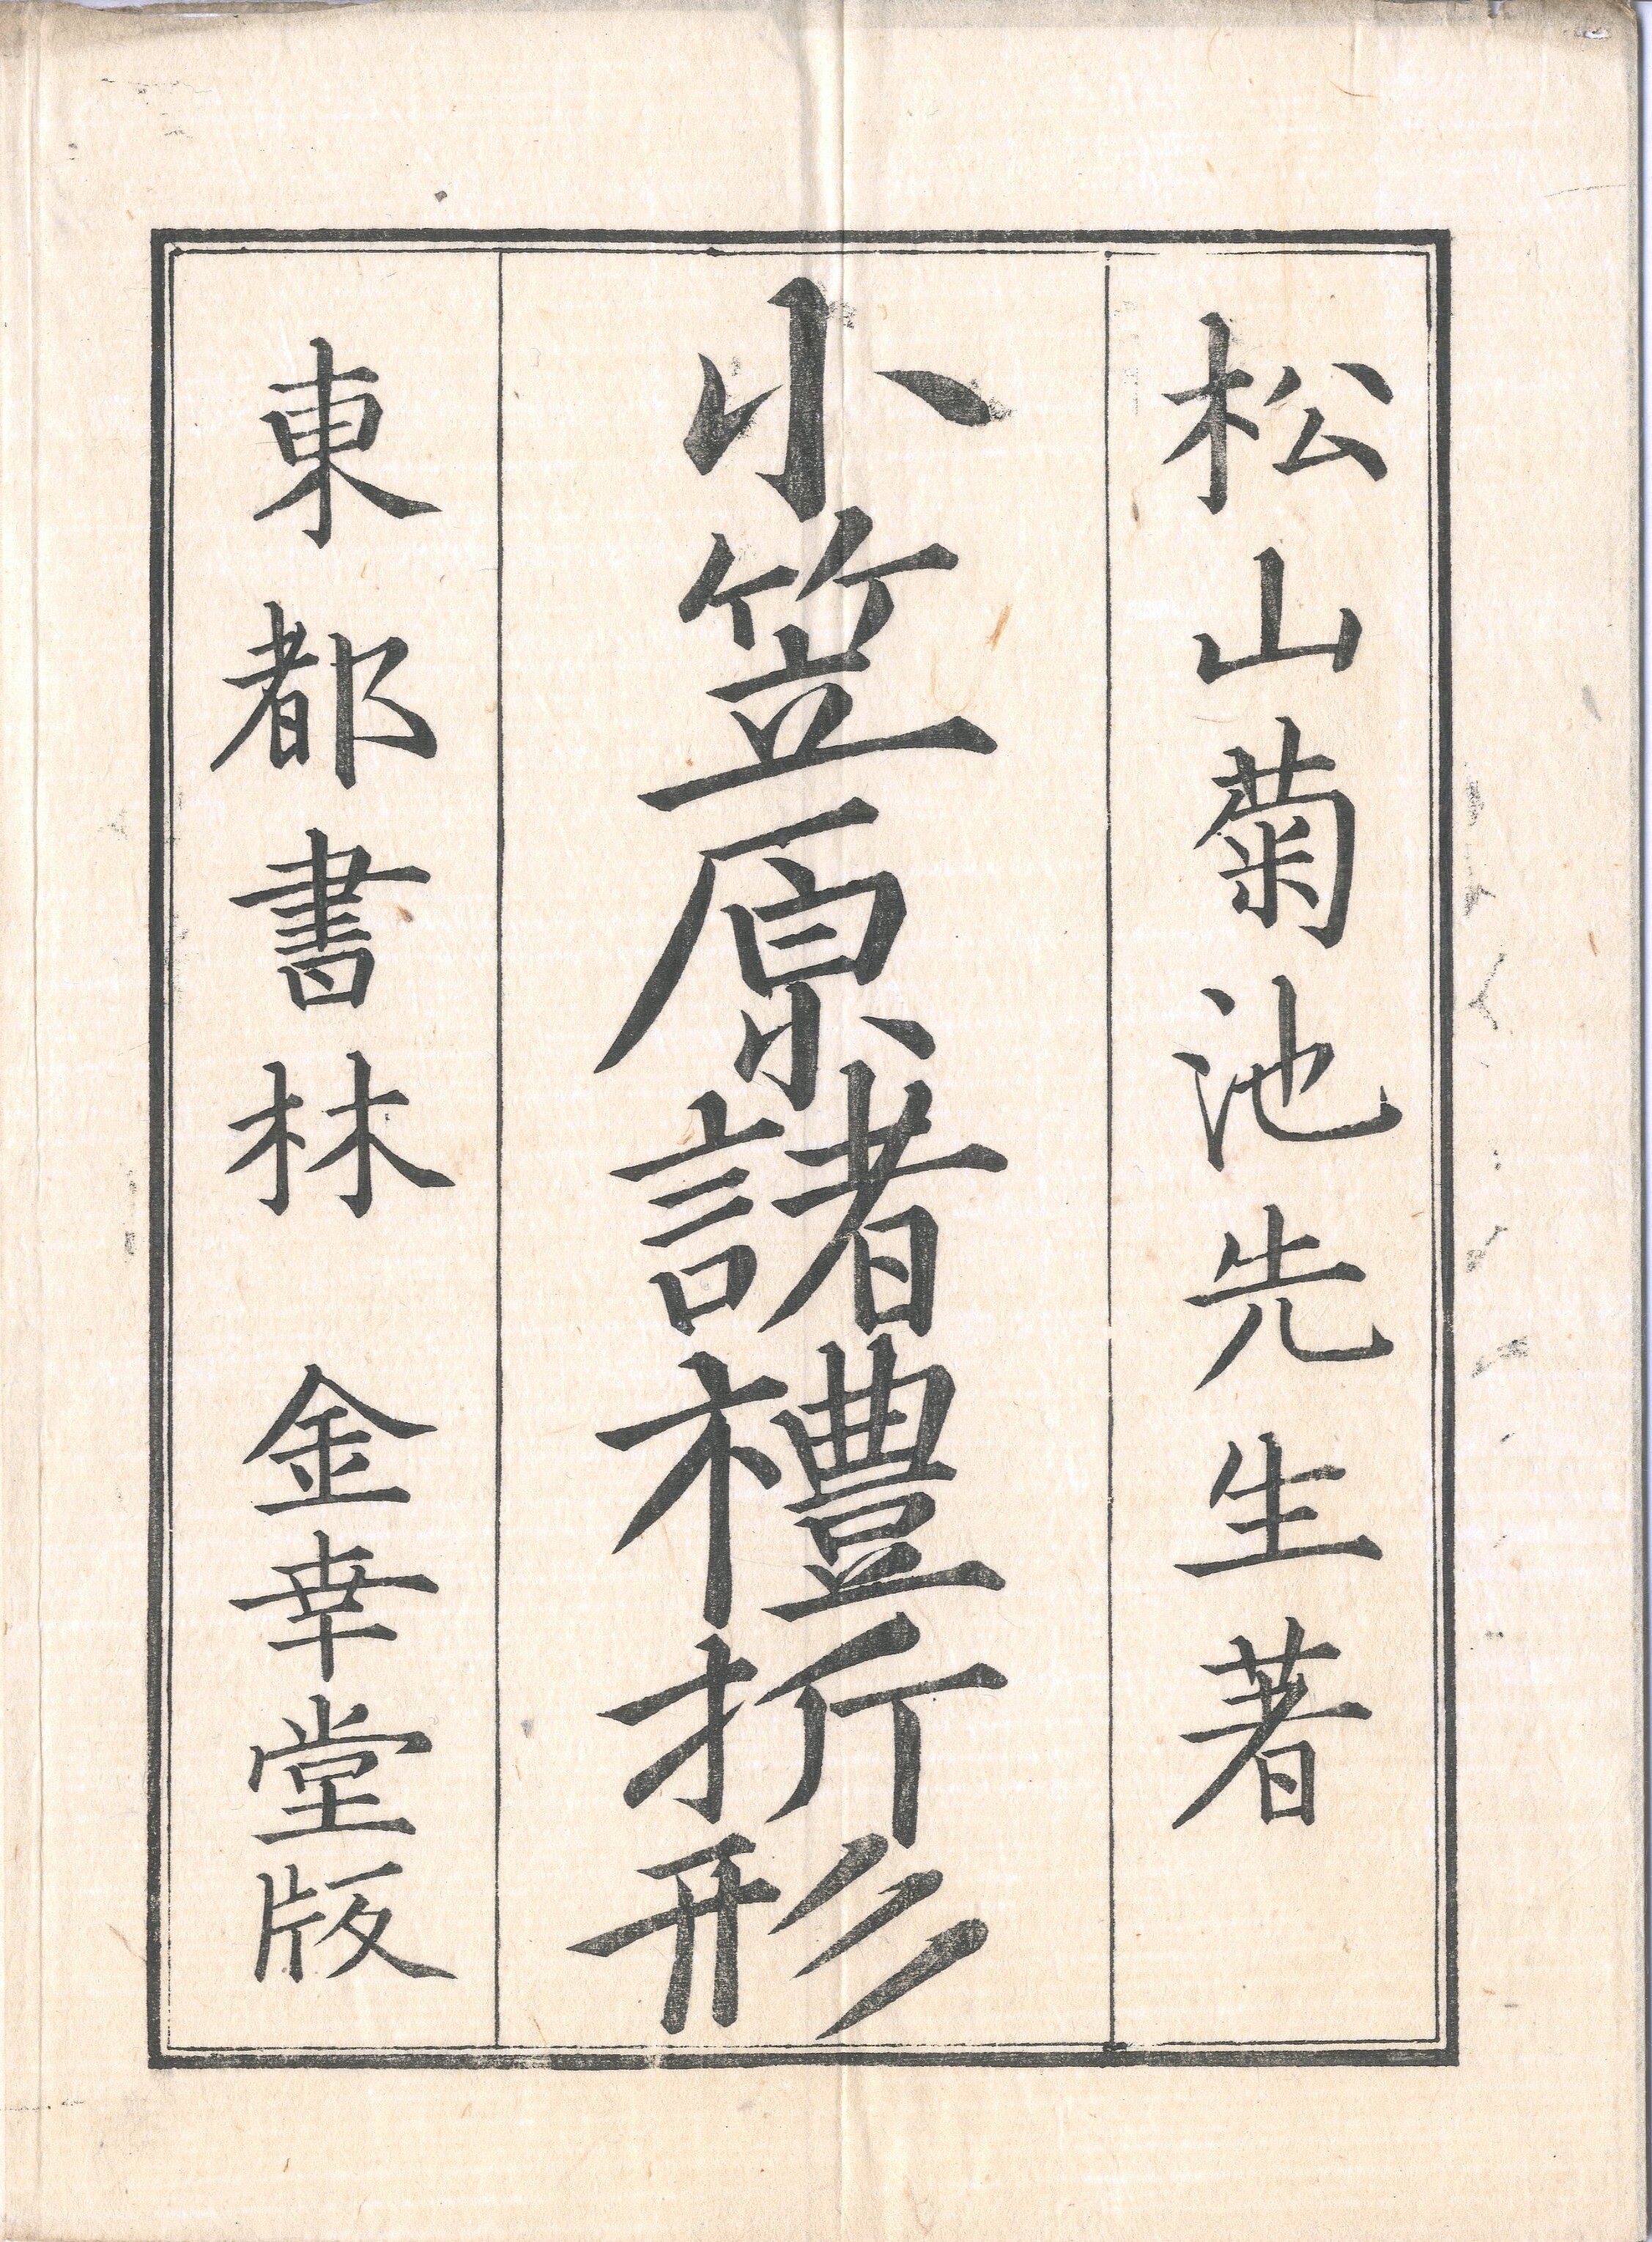 松山菊池先生著
小笠原諸禮折形
東都書林　金幸堂版